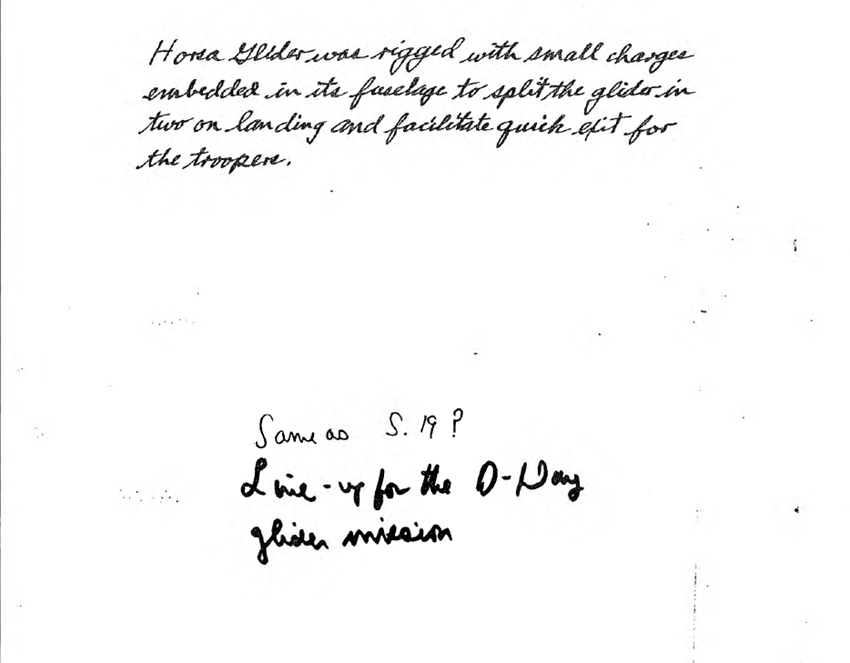 Horsa Glider was rigged with small charges
embedded in its fuselage to split the glider in
two on landing and facilitate quick exit for
the troopers.
Same as S. 19 ?
Line-up for the D-Day
glider mission